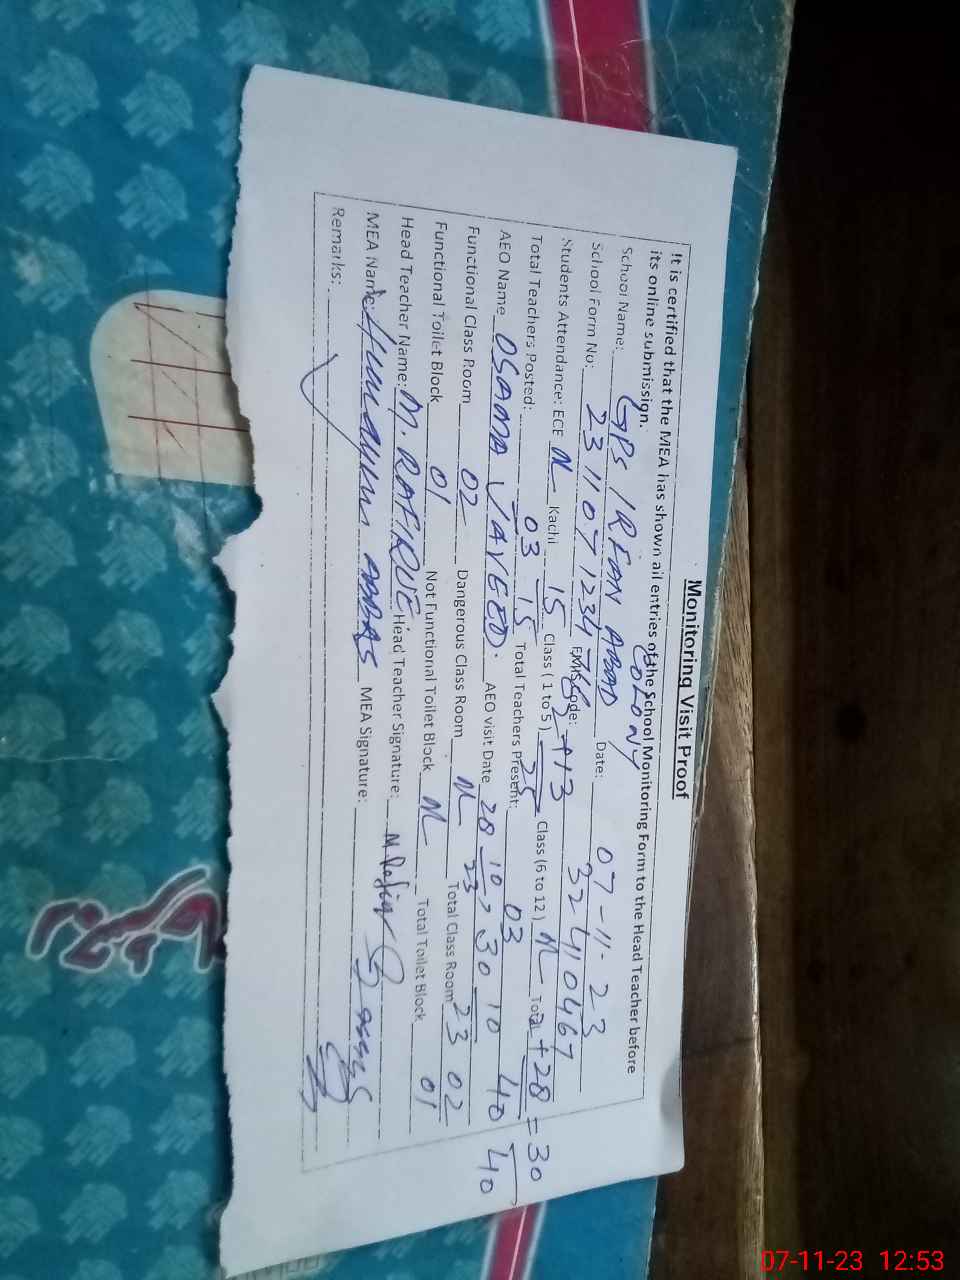 Monitoring Visit Proof
It is certified that the MEA has shown all entries of the School Monitoring Form to the Head Teacher before
its online submission.
COLONY
School Name: GPS IRFAN ABAD Date: 07-11-23
School Form No: 23 1107 1234 EMIS Code: 32410467
Students Attendance: ECE N Kachi 15 Class ( 1 to 5 ) +13 25 Class (6 to 12) N Total +28 = 30
Total Teachers Posted: 03 15 Total Teachers Present: 03 40 40
AEO Name OSAMA JAVEED. AEO visit Date 28 10 23, 30 10 23
Functional Class Room 02 Dangerous Class Room N Total Class Room 02
Functional Toilet Block 01 Not Functional Toilet Block N Total Toilet Block 01
Head Teacher Name: M. RAFIQUE Head Teacher Signature: M Rafiq
MEA Name: Humayun ABBAS MEA Signature:
Remarks:
07-11-23 12:53